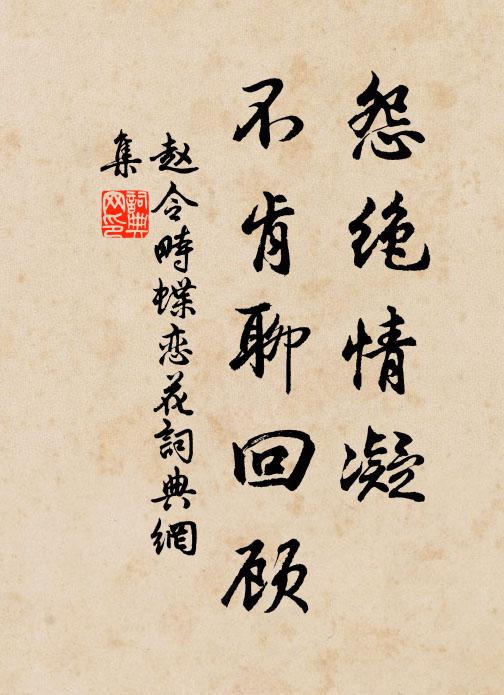 怨绝情凝
不肯聊回顾
赵令畤蝶恋花詞典網
集
詞典
网印